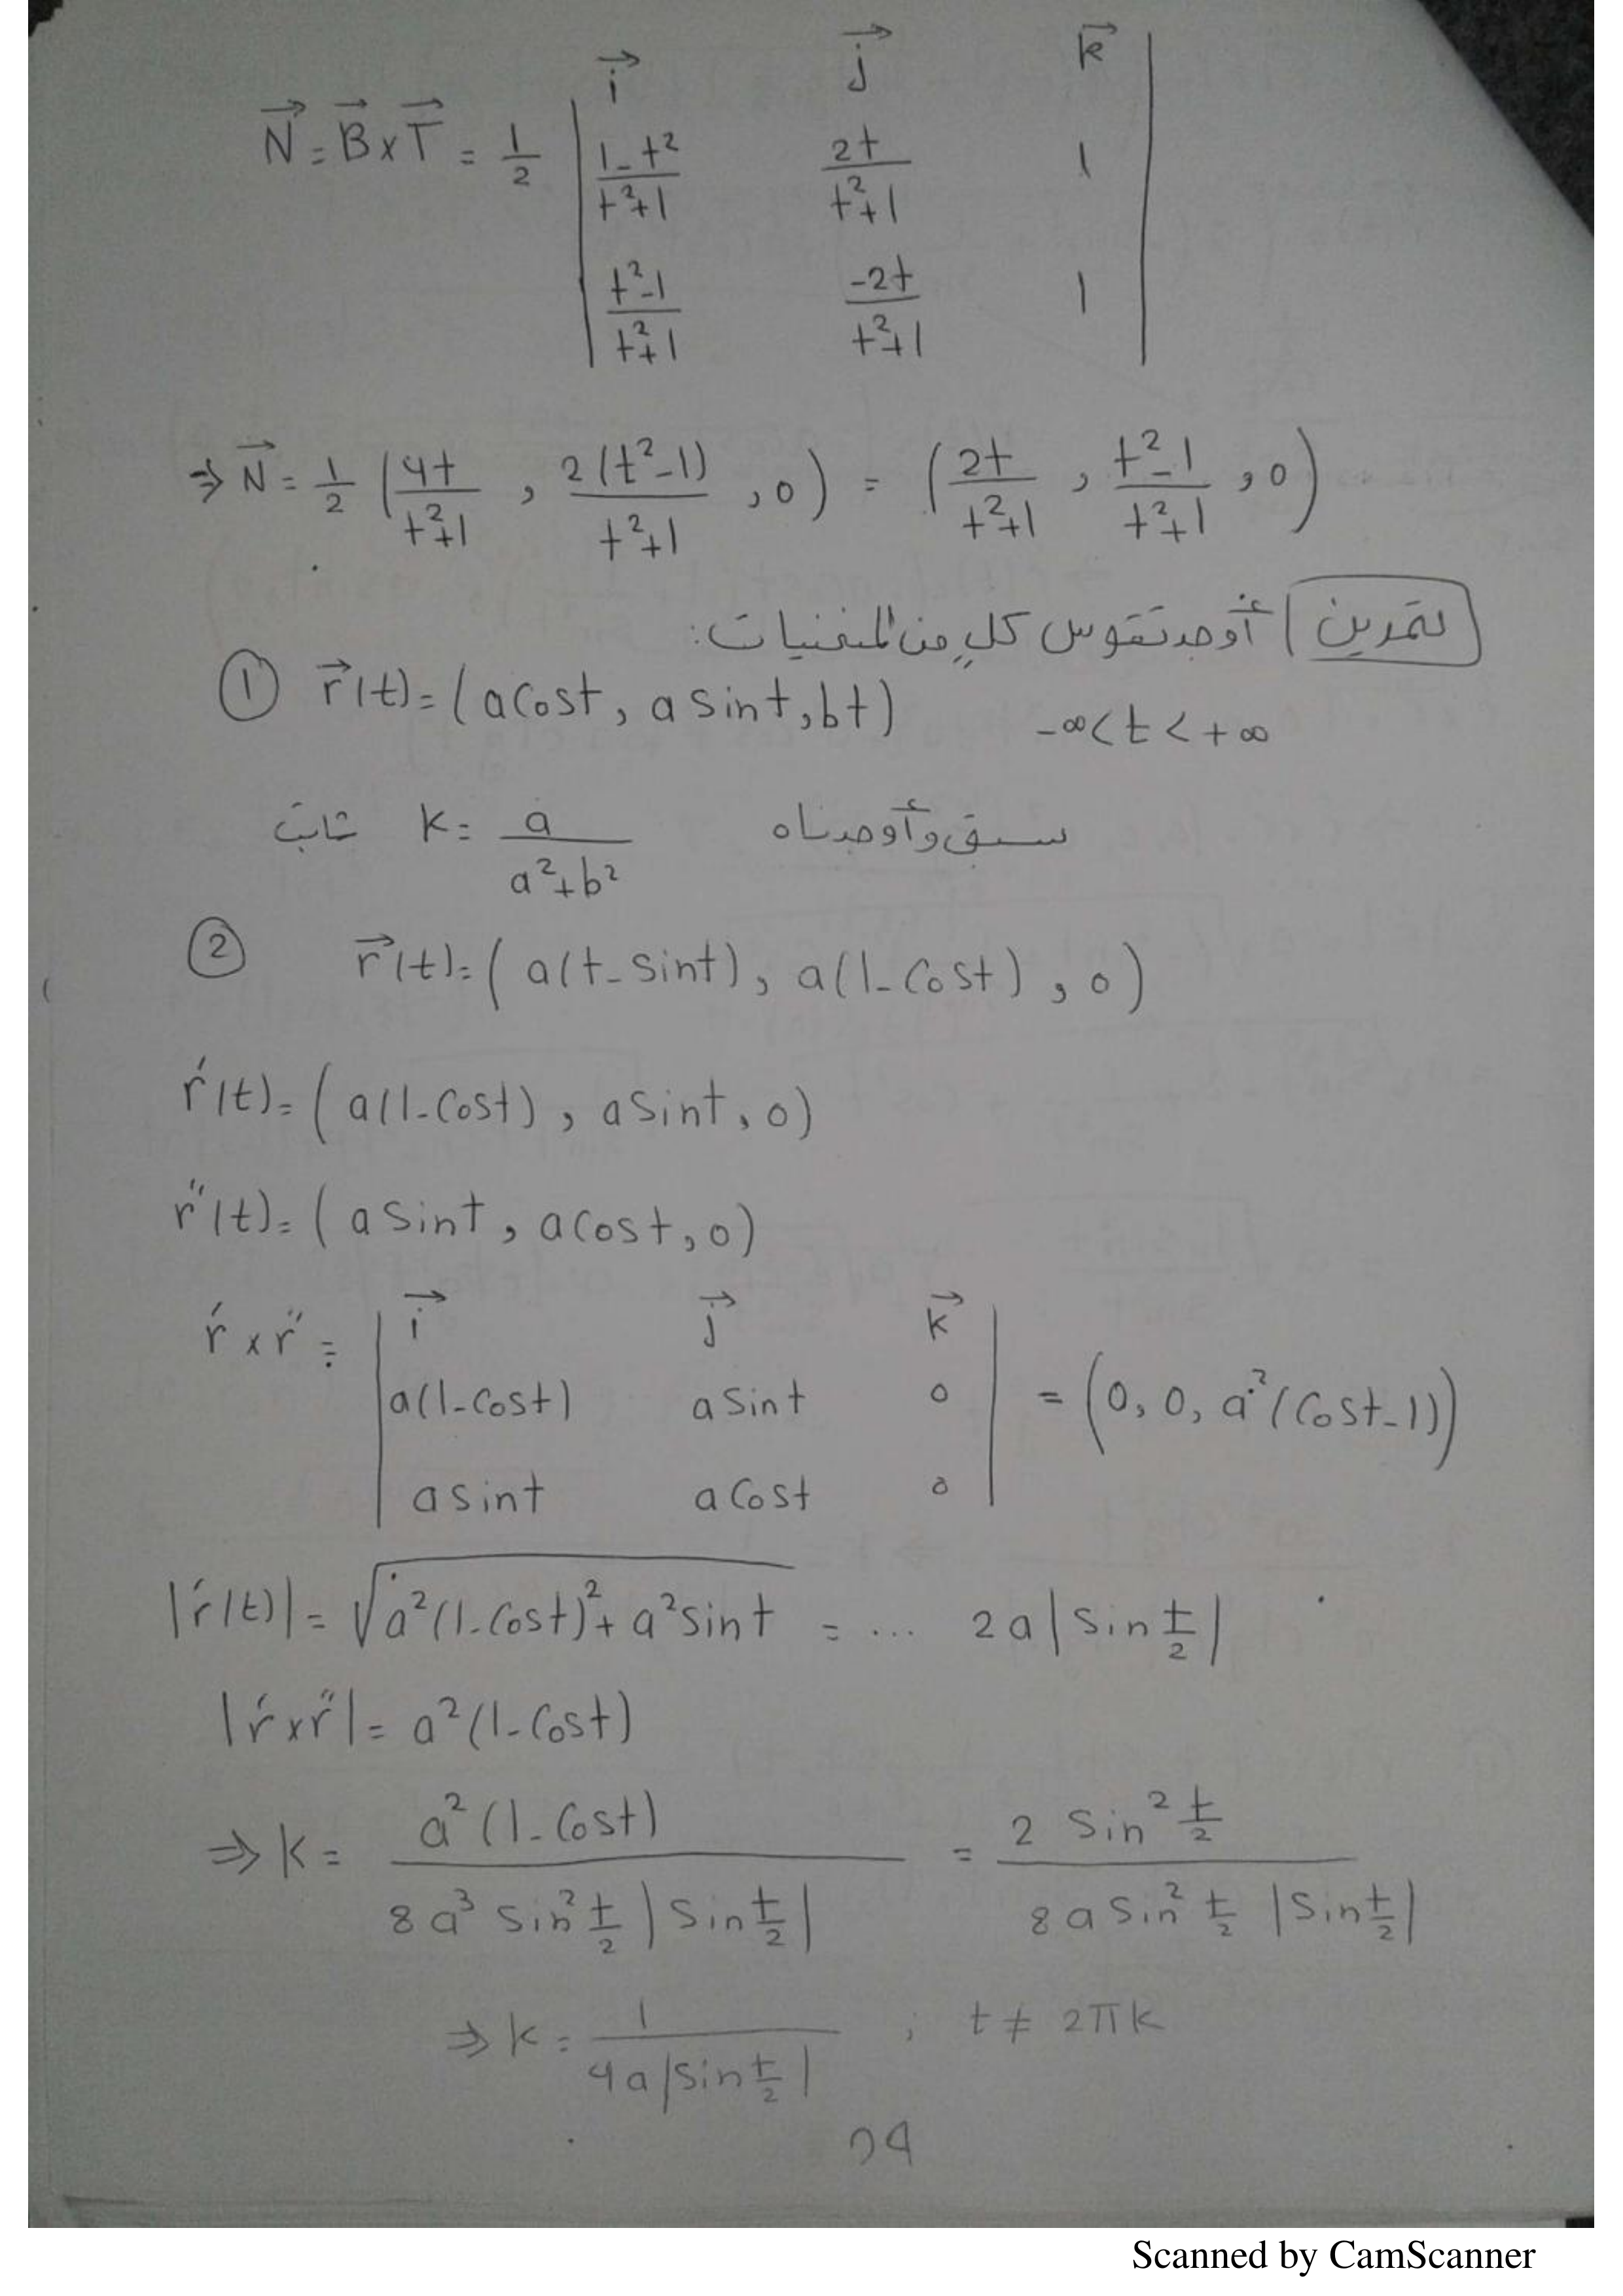 N⃗ = B⃗ x T⃗ = 1/2 | i⃗ j⃗ k⃗ |
| (1-t²)/(t²+1) 2t/(t²+1) 1 |
| (t²-1)/(t²+1) -2t/(t²+1) 1 |
⇒ N⃗ = 1/2 (4t/(t²+1) , 2(t²-1)/(t²+1) , 0) = (2t/(t²+1) , (t²-1)/(t²+1) , 0)
تمرين أوجد تقوس كلٍ من المنحنيات:
① r⃗(t) = (a cost, a sint, bt) -∞<t<+∞
سبق وأوجدناه k = a/(a²+b²) ثابت
② r⃗(t) = (a(t-sint), a(1-cost), 0)
r'(t) = (a(1-cost), a sint, 0)
r''(t) = (a sint, a cost, 0)
r' x r'' = | i⃗ j⃗ k⃗ |
| a(1-cost) a sint 0 | = (0, 0, a²(cost-1))
| a sint a cost 0 |
|r'(t)| = √(a²(1-cost)² + a² sint) = ... 2a|sin t/2|
|r' x r''| = a²(1-cost)
⇒ k = a²(1-cost)/(8a³ sin² t/2 |sin t/2|) = 2 sin² t/2/(8a sin² t/2 |sin t/2|)
⇒ k = 1/(4a|sin t/2|) ; t ≠ 2πk
Scanned by CamScanner